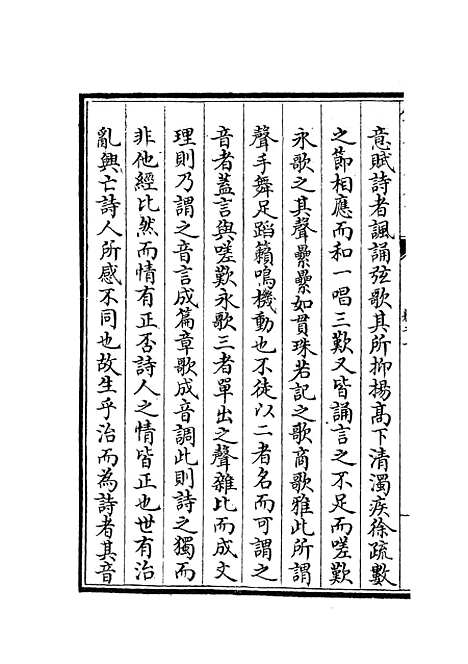 意賦詩者諷誦弦歌其所抑揚高下清濁疾徐疏數
之節相應而和一唱三歎又皆誦言之不足而嗟歎
永歌之其聲纍纍如貫珠若記之歌商歌雅此所謂
聲手舞足蹈籟鳴機動也不徒以二者名而可謂之
音者蓋言與嗟歎永歌三者單出之聲雜比而成文
理則乃謂之音言成篇章歌成音調此則詩之獨而
非他經比然而情有正否詩人之情皆正也世有治
亂興亡詩人所感不同也故生乎治而為詩者其音